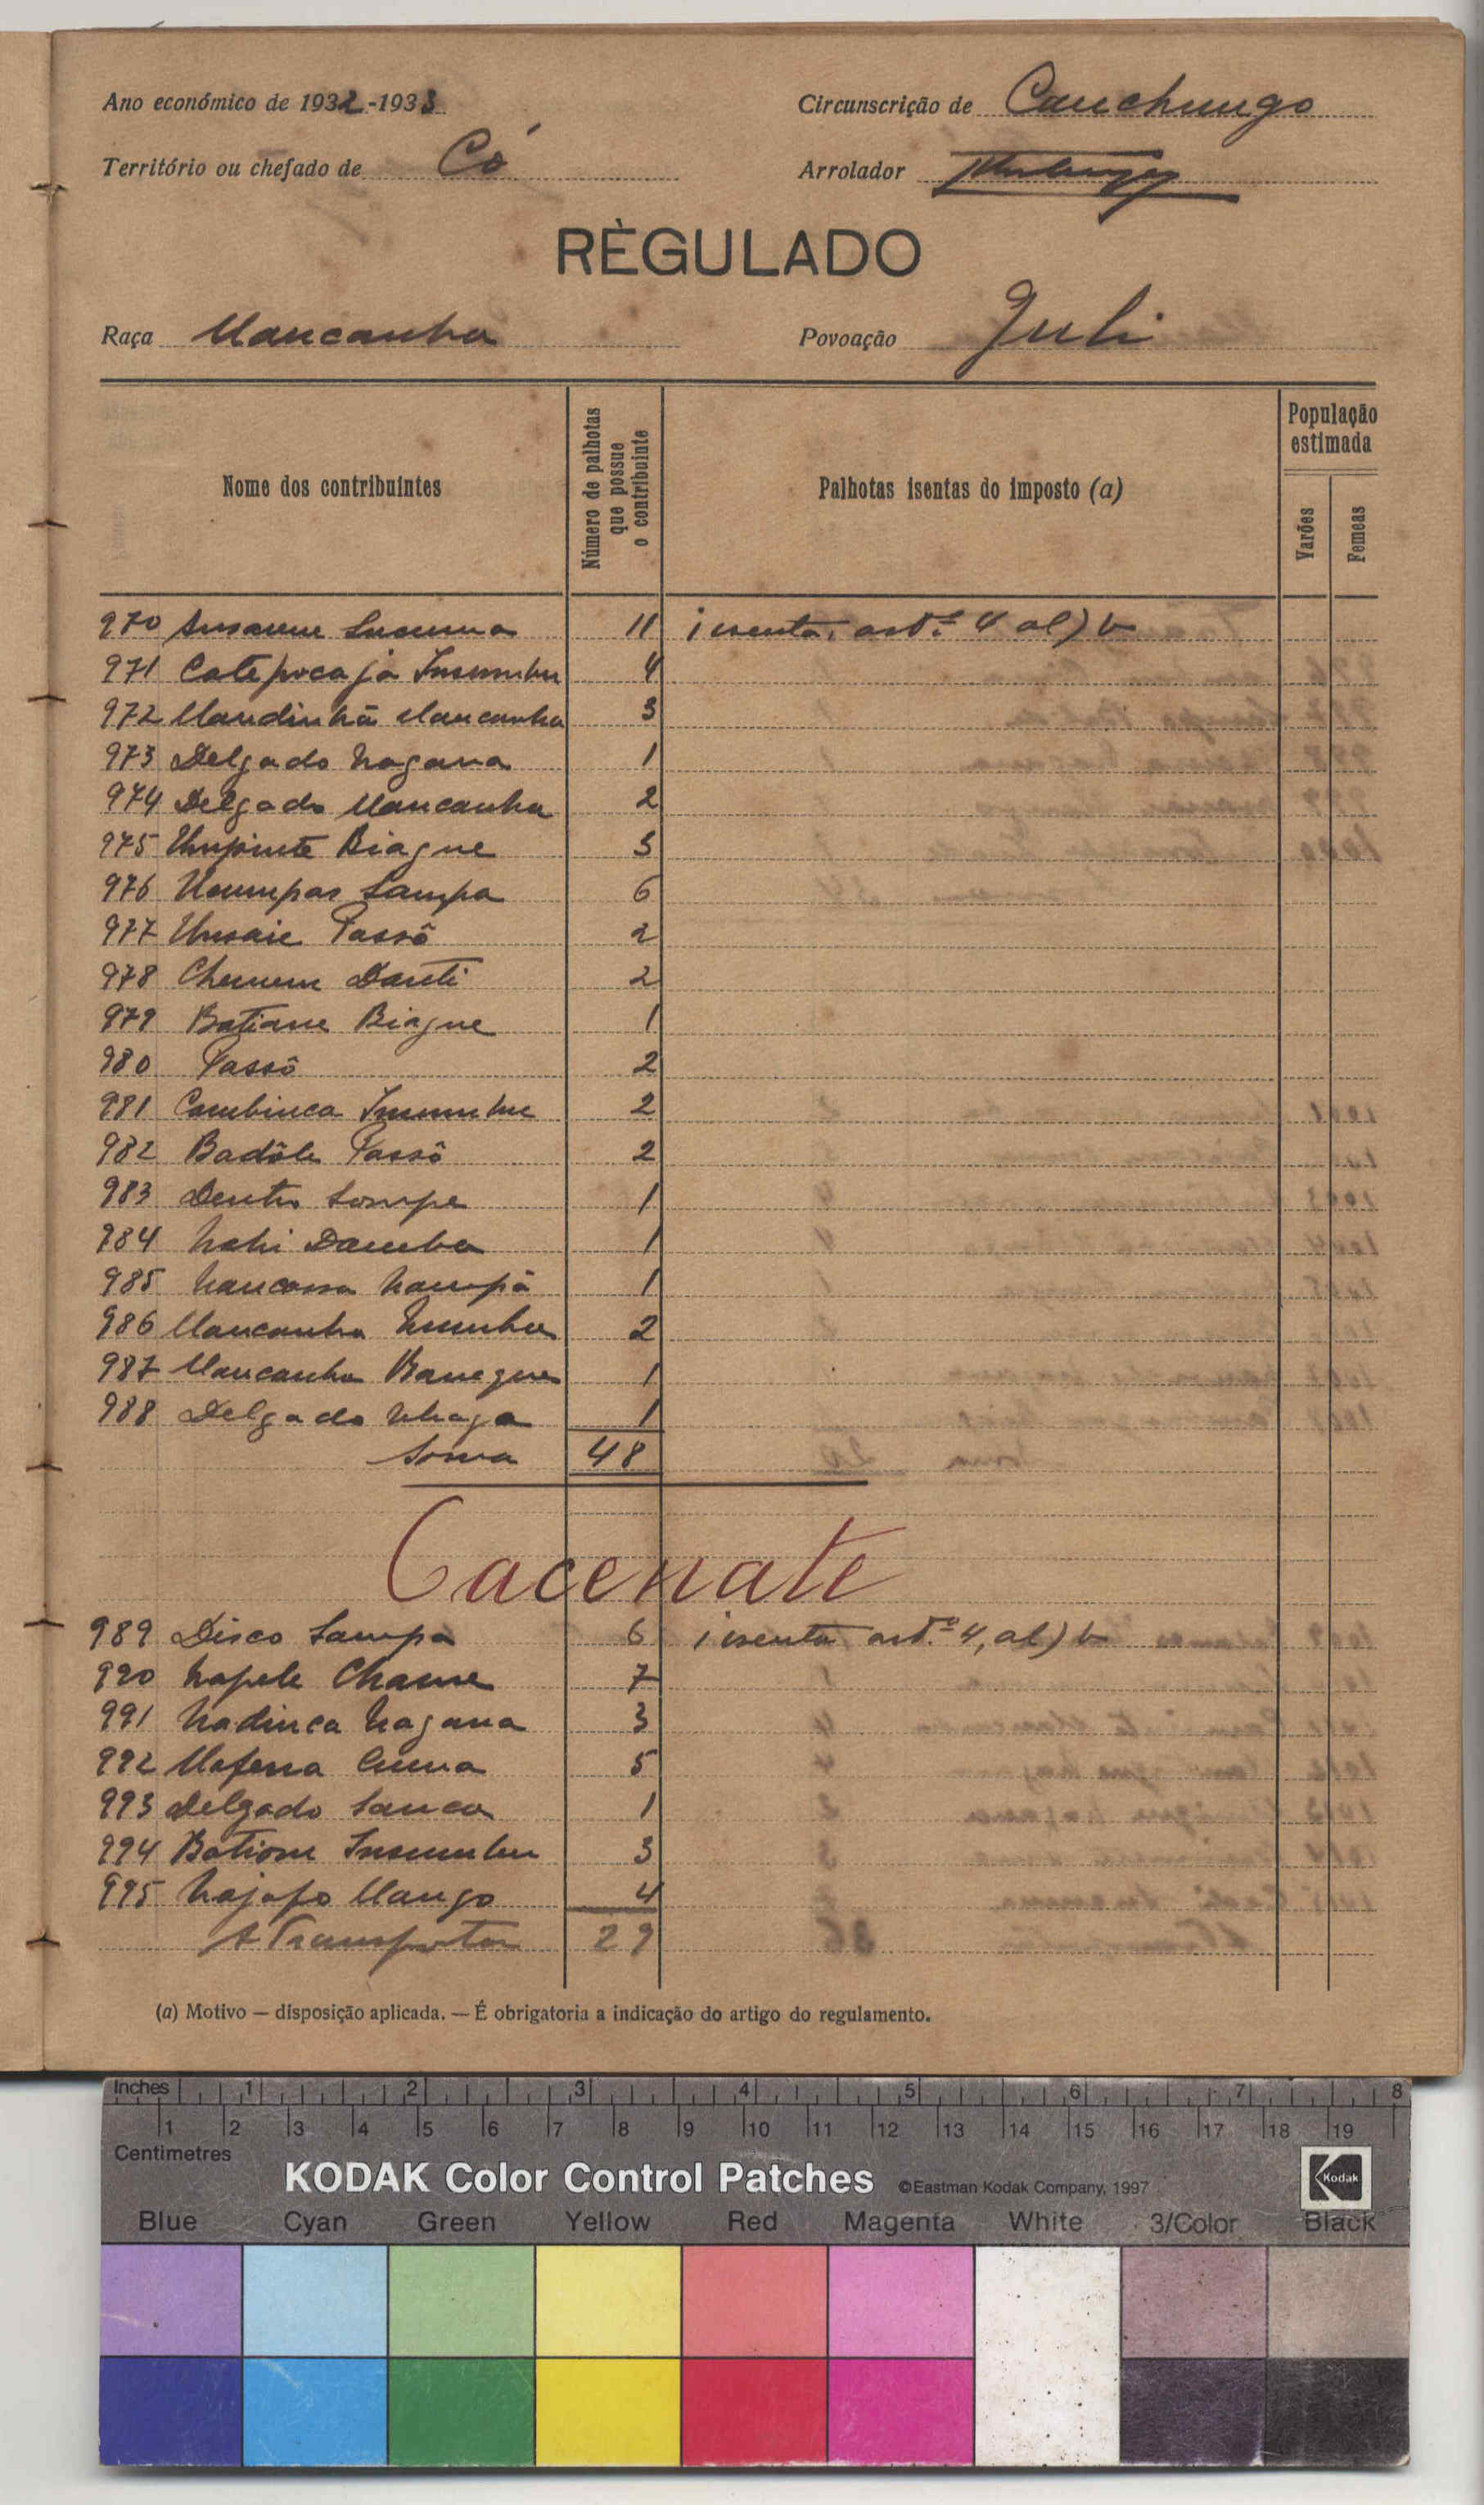 Ano económico de 1932-1933
Circunscrição de Canchungo
Território ou chefado de Có
Arrolador
RÈGULADO
Raça Mancanha
Povoação Juli
Nome dos contribuintes
Número de palhotas que possue o contribuinte
Palhotas isentas do imposto (a)
População estimada
Varões
Femeas
970 11 isenta, art.º 4 al) b
971 4
972 Mandinhã Mancanha 3
973 Delgado Nagana 1
974 Delgado Mancanha 2
975 Biague 3
976 Sampa 6
977 Passô 2
978 Danti 2
979 Batiane Biague 1
980 Passô 2
981 Cambinca 2
982 Badôle Passô 2
983 Sompe 1
984 1
985 1
986 Mancanha 2
987 Mancanha 1
988 Delgado 1
Soma 48
Cacenate
989 Disco Sampa 6 isenta art.º 4, al) b
990 Napele Chame 7
991 Nadinca Nagana 3
992 5
993 Delgado Sanca 1
994 3
995 Najafo Mango 4
A Transportar 29
(a) Motivo — disposição aplicada. — É obrigatoria a indicação do artigo do regulamento.
Inches 1 2 3 4 5 6 7 8
1 2 3 4 5 6 7 8 9 10 11 12 13 14 15 16 17 18 19
Centimetres
KODAK Color Control Patches ©Eastman Kodak Company, 1997 Kodak
Blue Cyan Green Yellow Red Magenta White 3/Color Black